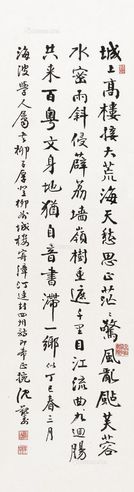 城上高樓接大荒海天愁思正茫〻驚風亂颭芙蓉
水密雨斜侵薜荔墻嶺樹重遮千里目江流曲九迴腸
共來百粵文身地猶自音書滯一鄉 似 丁巳春三月
海波學人屬書柳子厚登柳州城樓寄漳汀連封四州詩即希正捥 沈